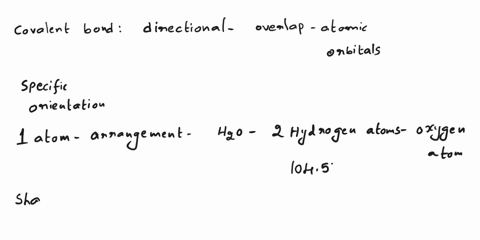 Covalent bond: directional- overlap-atomic
orbitals
Specific
orientation
1 atom- arrangement- H2O- 2 Hydrogen atoms- oxygen
atom
104.5°
Sha